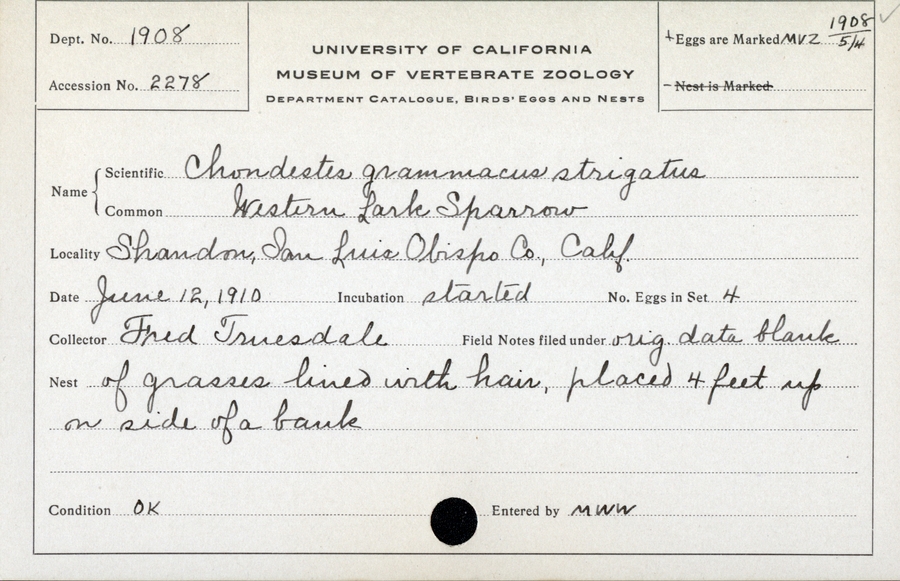 Dept. No. 1908
Accession No. 2278
UNIVERSITY OF CALIFORNIA
MUSEUM OF VERTEBRATE ZOOLOGY
DEPARTMENT CATALOGUE, BIRDS' EGGS AND NESTS
+Eggs are Marked MVZ 1908 5/4
- Nest is Marked
Name
Scientific Chondestes grammacus strigatus
Common Western Lark Sparrow
Locality Shandon, San Luis Obispo Co., Calif.
Date June 12, 1910 Incubation started No. Eggs in Set 4
Collector Fred Truesdale Field Notes filed under orig. data blank
Nest of grasses lined with hair, placed 4 feet up
on side of a bank
Condition OK Entered by MWW